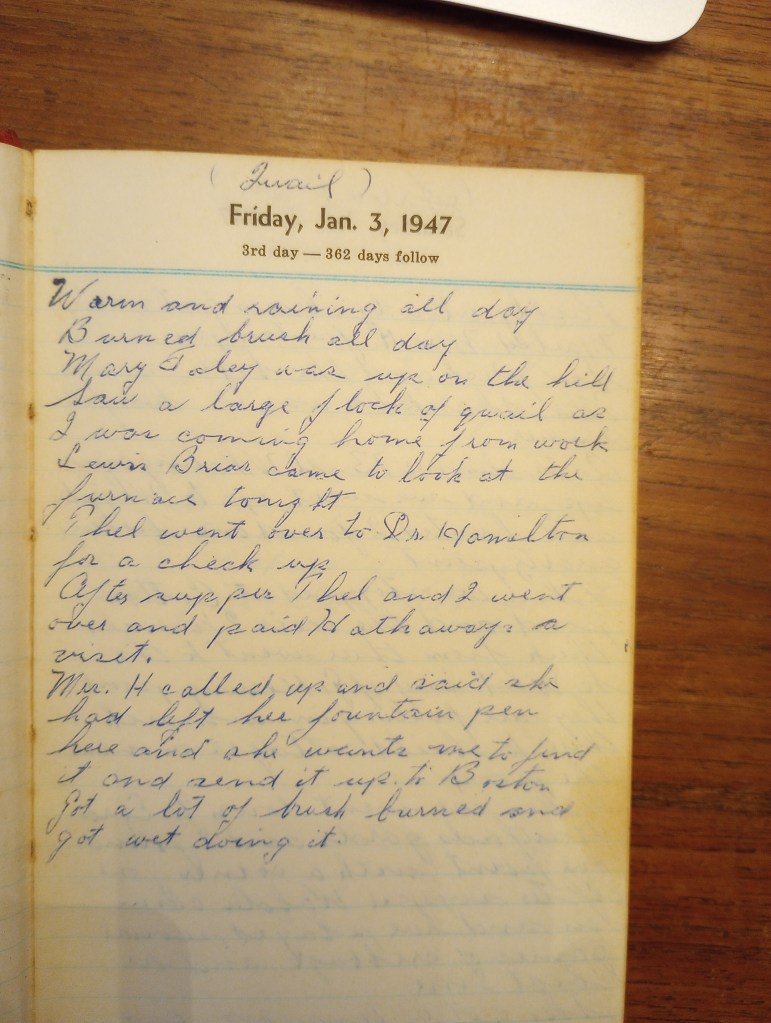 (Quail)
Friday, Jan. 3, 1947
3rd day — 362 days follow
Warm and raining all day
Burned brush all day
Mary Foley was up on the hill
Saw a large flock of quail as
I was coming home from work
Lewis Briar came to look at the
furnace tonight
Thel went over to Dr. Hamilton
for a check up
After supper Thel and I went
over and paid Hathaways a
viset.
Mrs. H called up and said she
had left her fountain pen
here and she wants me to find
it and send it up to Boston
Got a lot of brush burned and
got wet doing it.